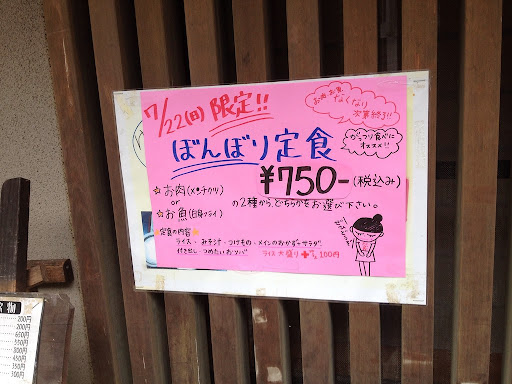 7/22(日) 限定!!
お肉、お魚、なくなり
次第終了!!
がっつり食べに
オススメ!!
ぼんぼり定食
¥750-(税込み)
☆お肉(メンチカツ)
or
☆お魚(白身フライ)
の2種から、どちらかをお選び下さい。
定食の内容
ライス・みそ汁・つけもの・メインのおかず・サラダ
付き出し・つめたいおソバ
ライス大盛り+100円
物
200円
200円
650円
550円
550円
800円
450円
350円
350円
300円